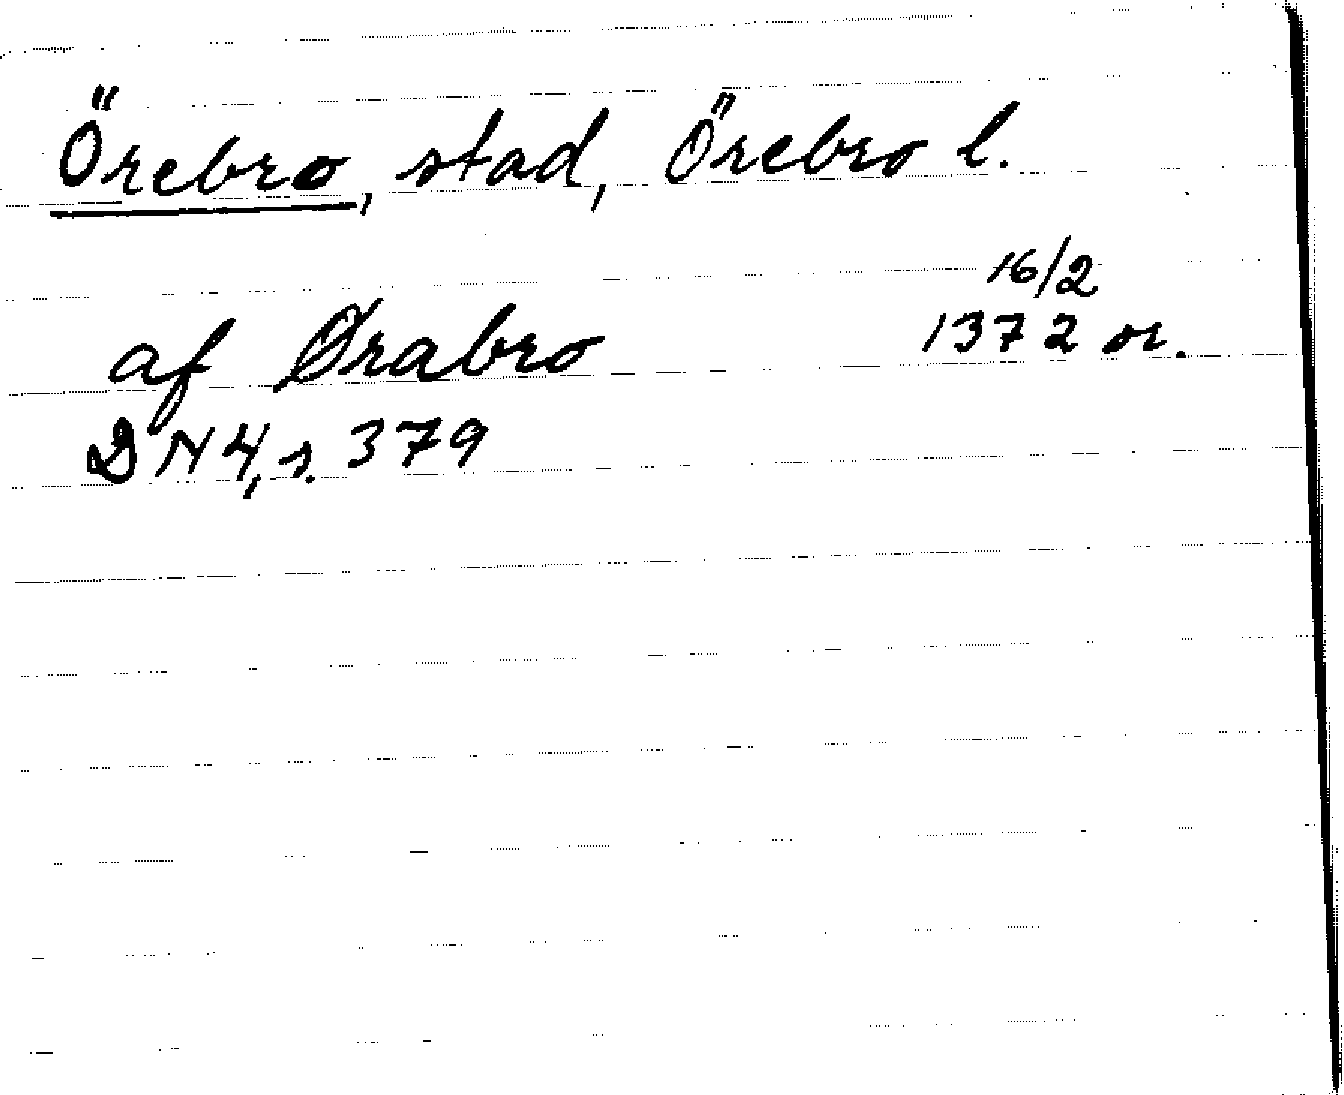 Örebro, stad, Örebro l.
16/2
af Ørabro 1372 or.
DN 4, s. 379